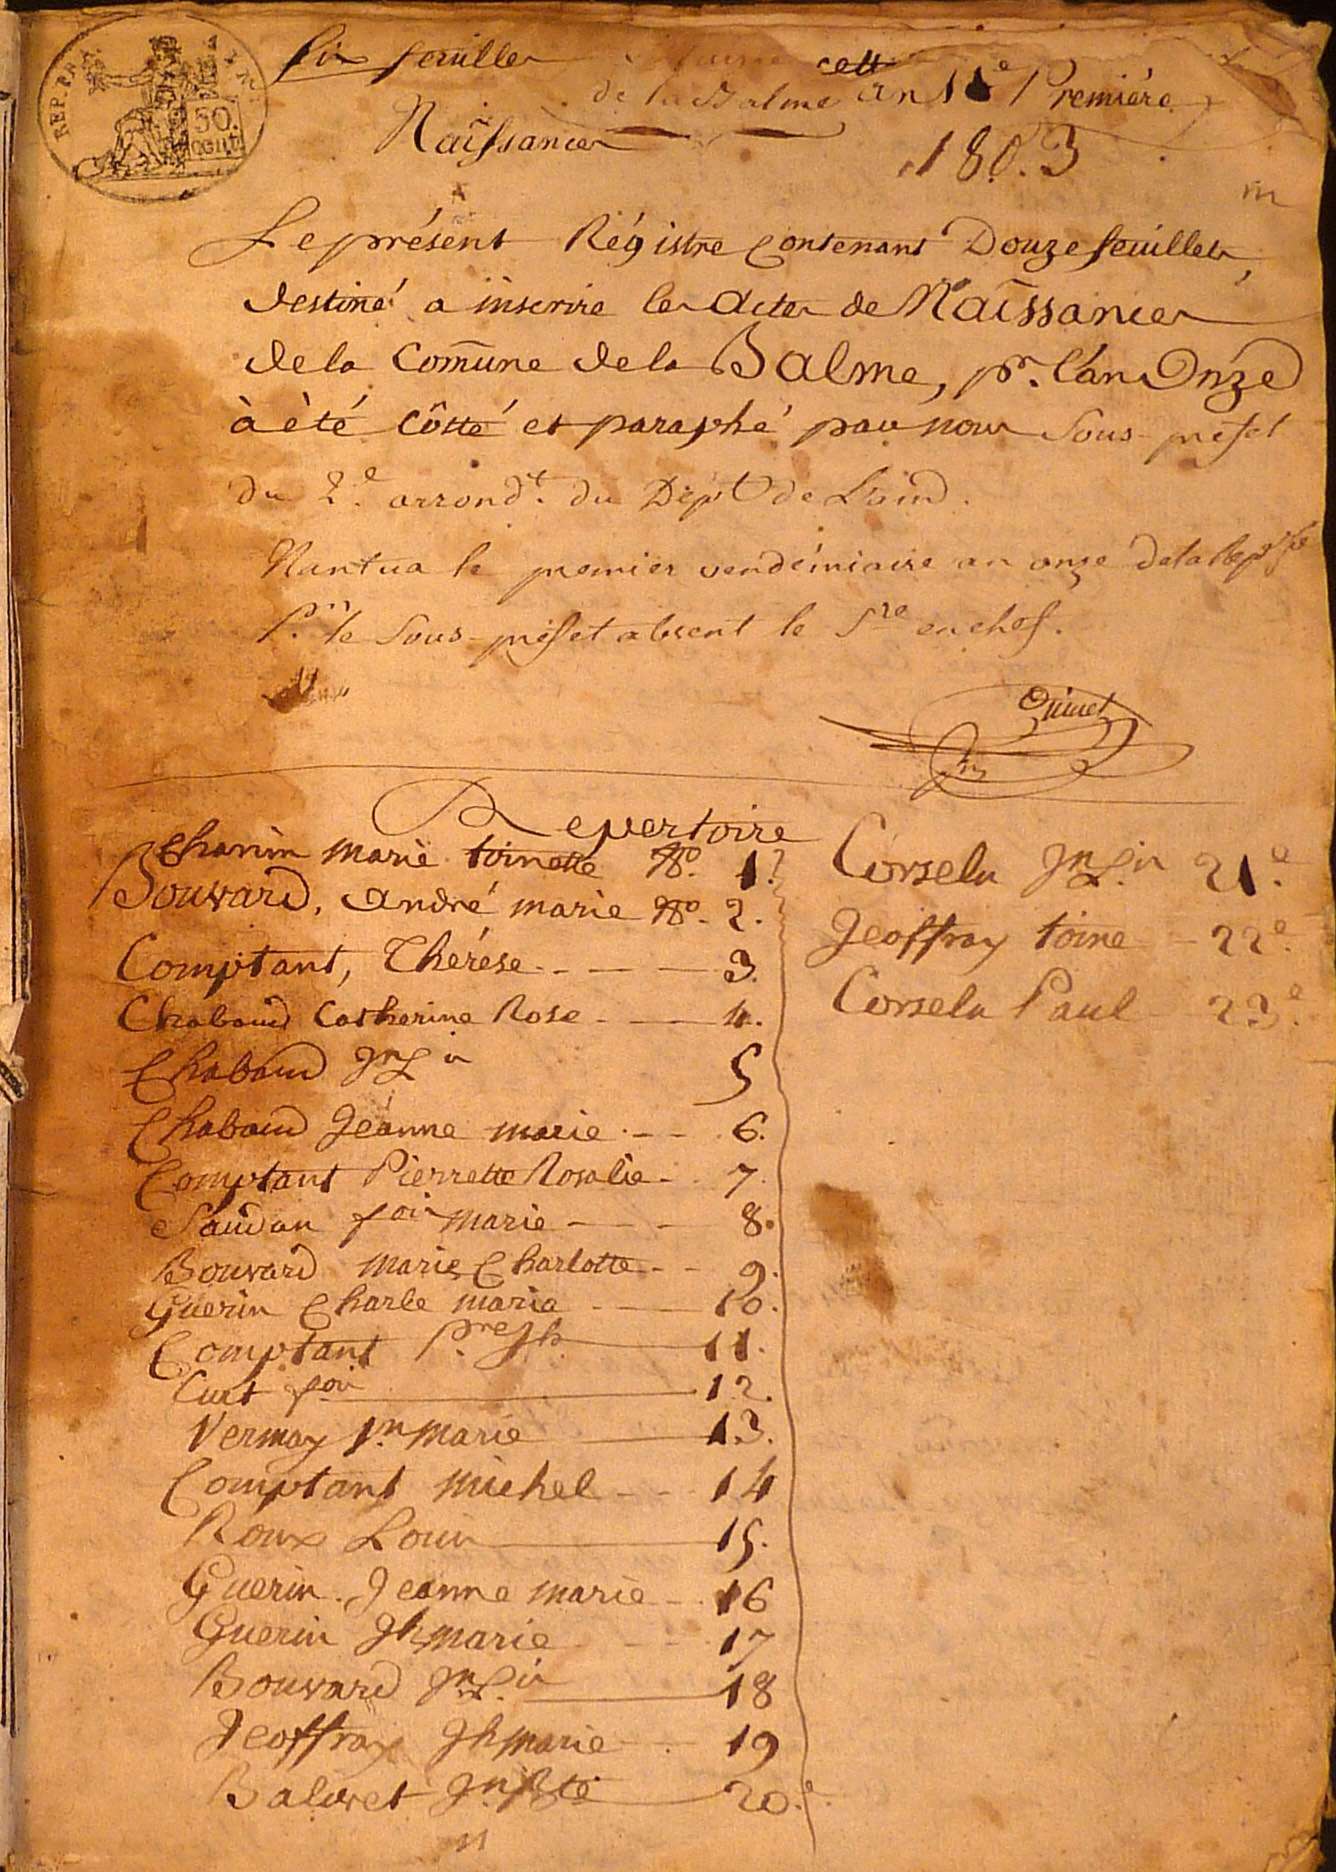 REP. FRA.
50.
CENT.
Six feuilles
de la Balme an 11e Premiére
Naissances
1803
Le présent Régistre Contenant Douze feuillets,
destiné a inscrire les actes de Naîssances
de la Comune de la Balme, pr. l'an Onze
à èté Côtté et paraphé par nous Sous-prefet
du 2.e arrondt. du Dépt de L'ain.
Nantua le premier vendémiaire an onze de la Repque fse
Pr. le Sous-préfet absent le Sre en chef.
Repertoire
Chanin Marie toinette No. 1.
Bouvard, André Marie No. 2.
Comptant, Thérése 3.
Chabaud Catherine Rose 4.
Chabaud Jn Ls 5
Chabaud Jéanne Marie 6.
Comptant Pierrette Rosalie 7.
Saudan fois Marie 8.
Bouvard Marie Charlotte 9.
Guerin Charle Maria 10.
Comptant Pre Jh 11.
Curt fois 12.
Vermay Marie 13.
Comptant Michel 14
Roux Louis 15.
Guerin Jeanne Marie 16
Guerin Jh Marie 17
Bouvard Jn Ls 18
Jeoffray Jh Marie 19
Balivet Jn Bte 20.e
Corselu Jn Ls 21e.
Jeoffray toine 22e.
Corselu Paul 23e.